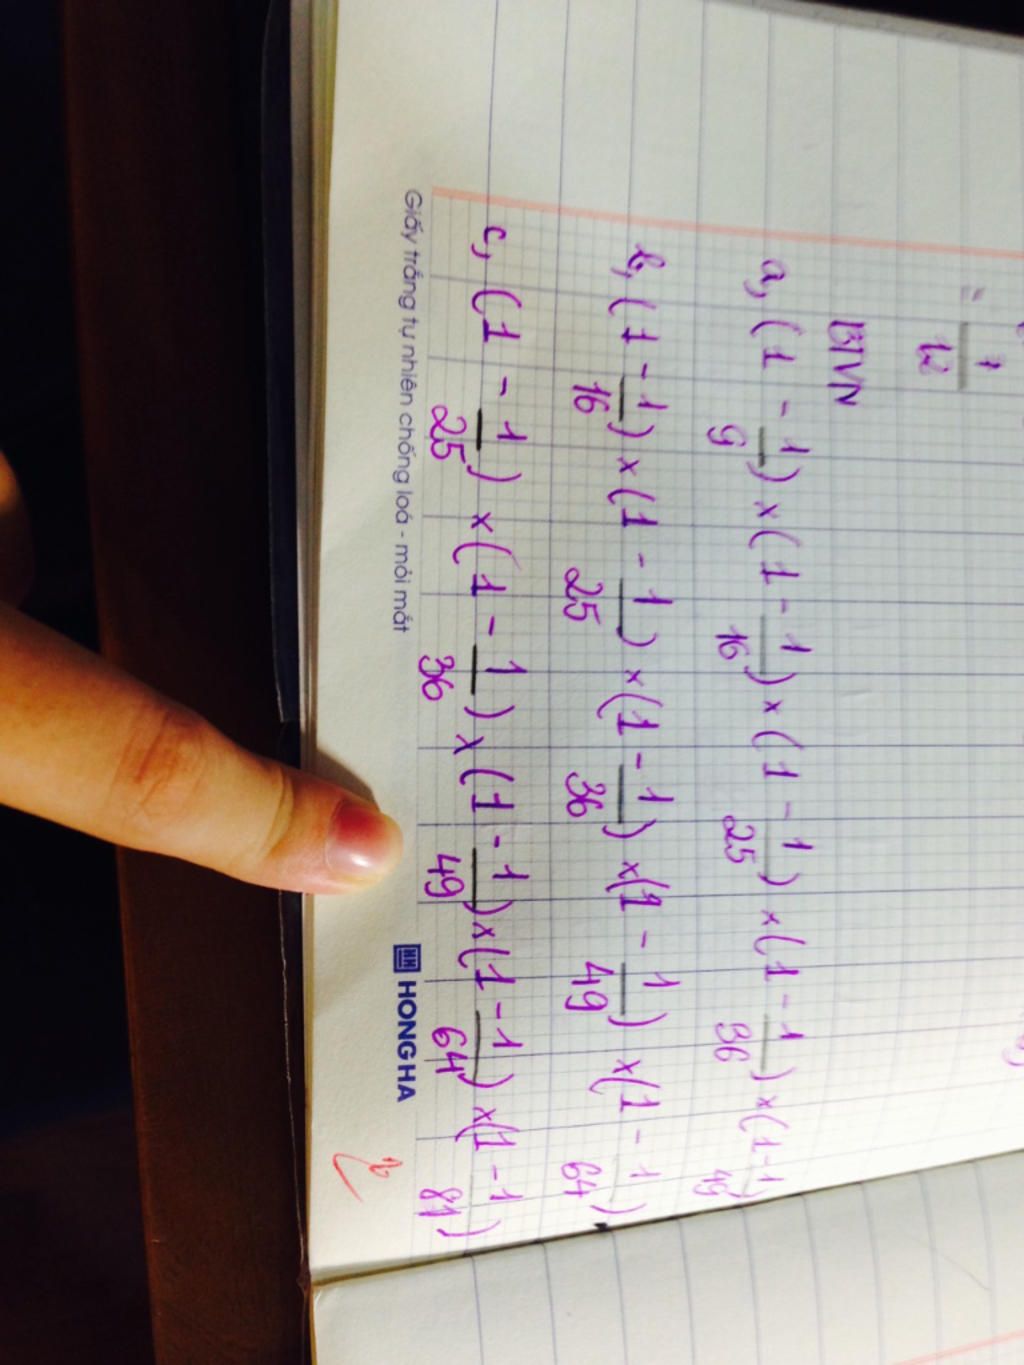 = 1/12
BTVN
a, (1 - 1/9) x (1 - 1/16) x (1 - 1/25) x (1 - 1/36) x (1 - 1/49)
b, (1 - 1/16) x (1 - 1/25) x (1 - 1/36) x (1 - 1/49) x (1 - 1/64)
c, (1 - 1/25) x (1 - 1/36) x (1 - 1/49) x (1 - 1/64) x (1 - 1/81)
Giấy trắng tự nhiên chống loá - mỏi mắt
HH HONG HA